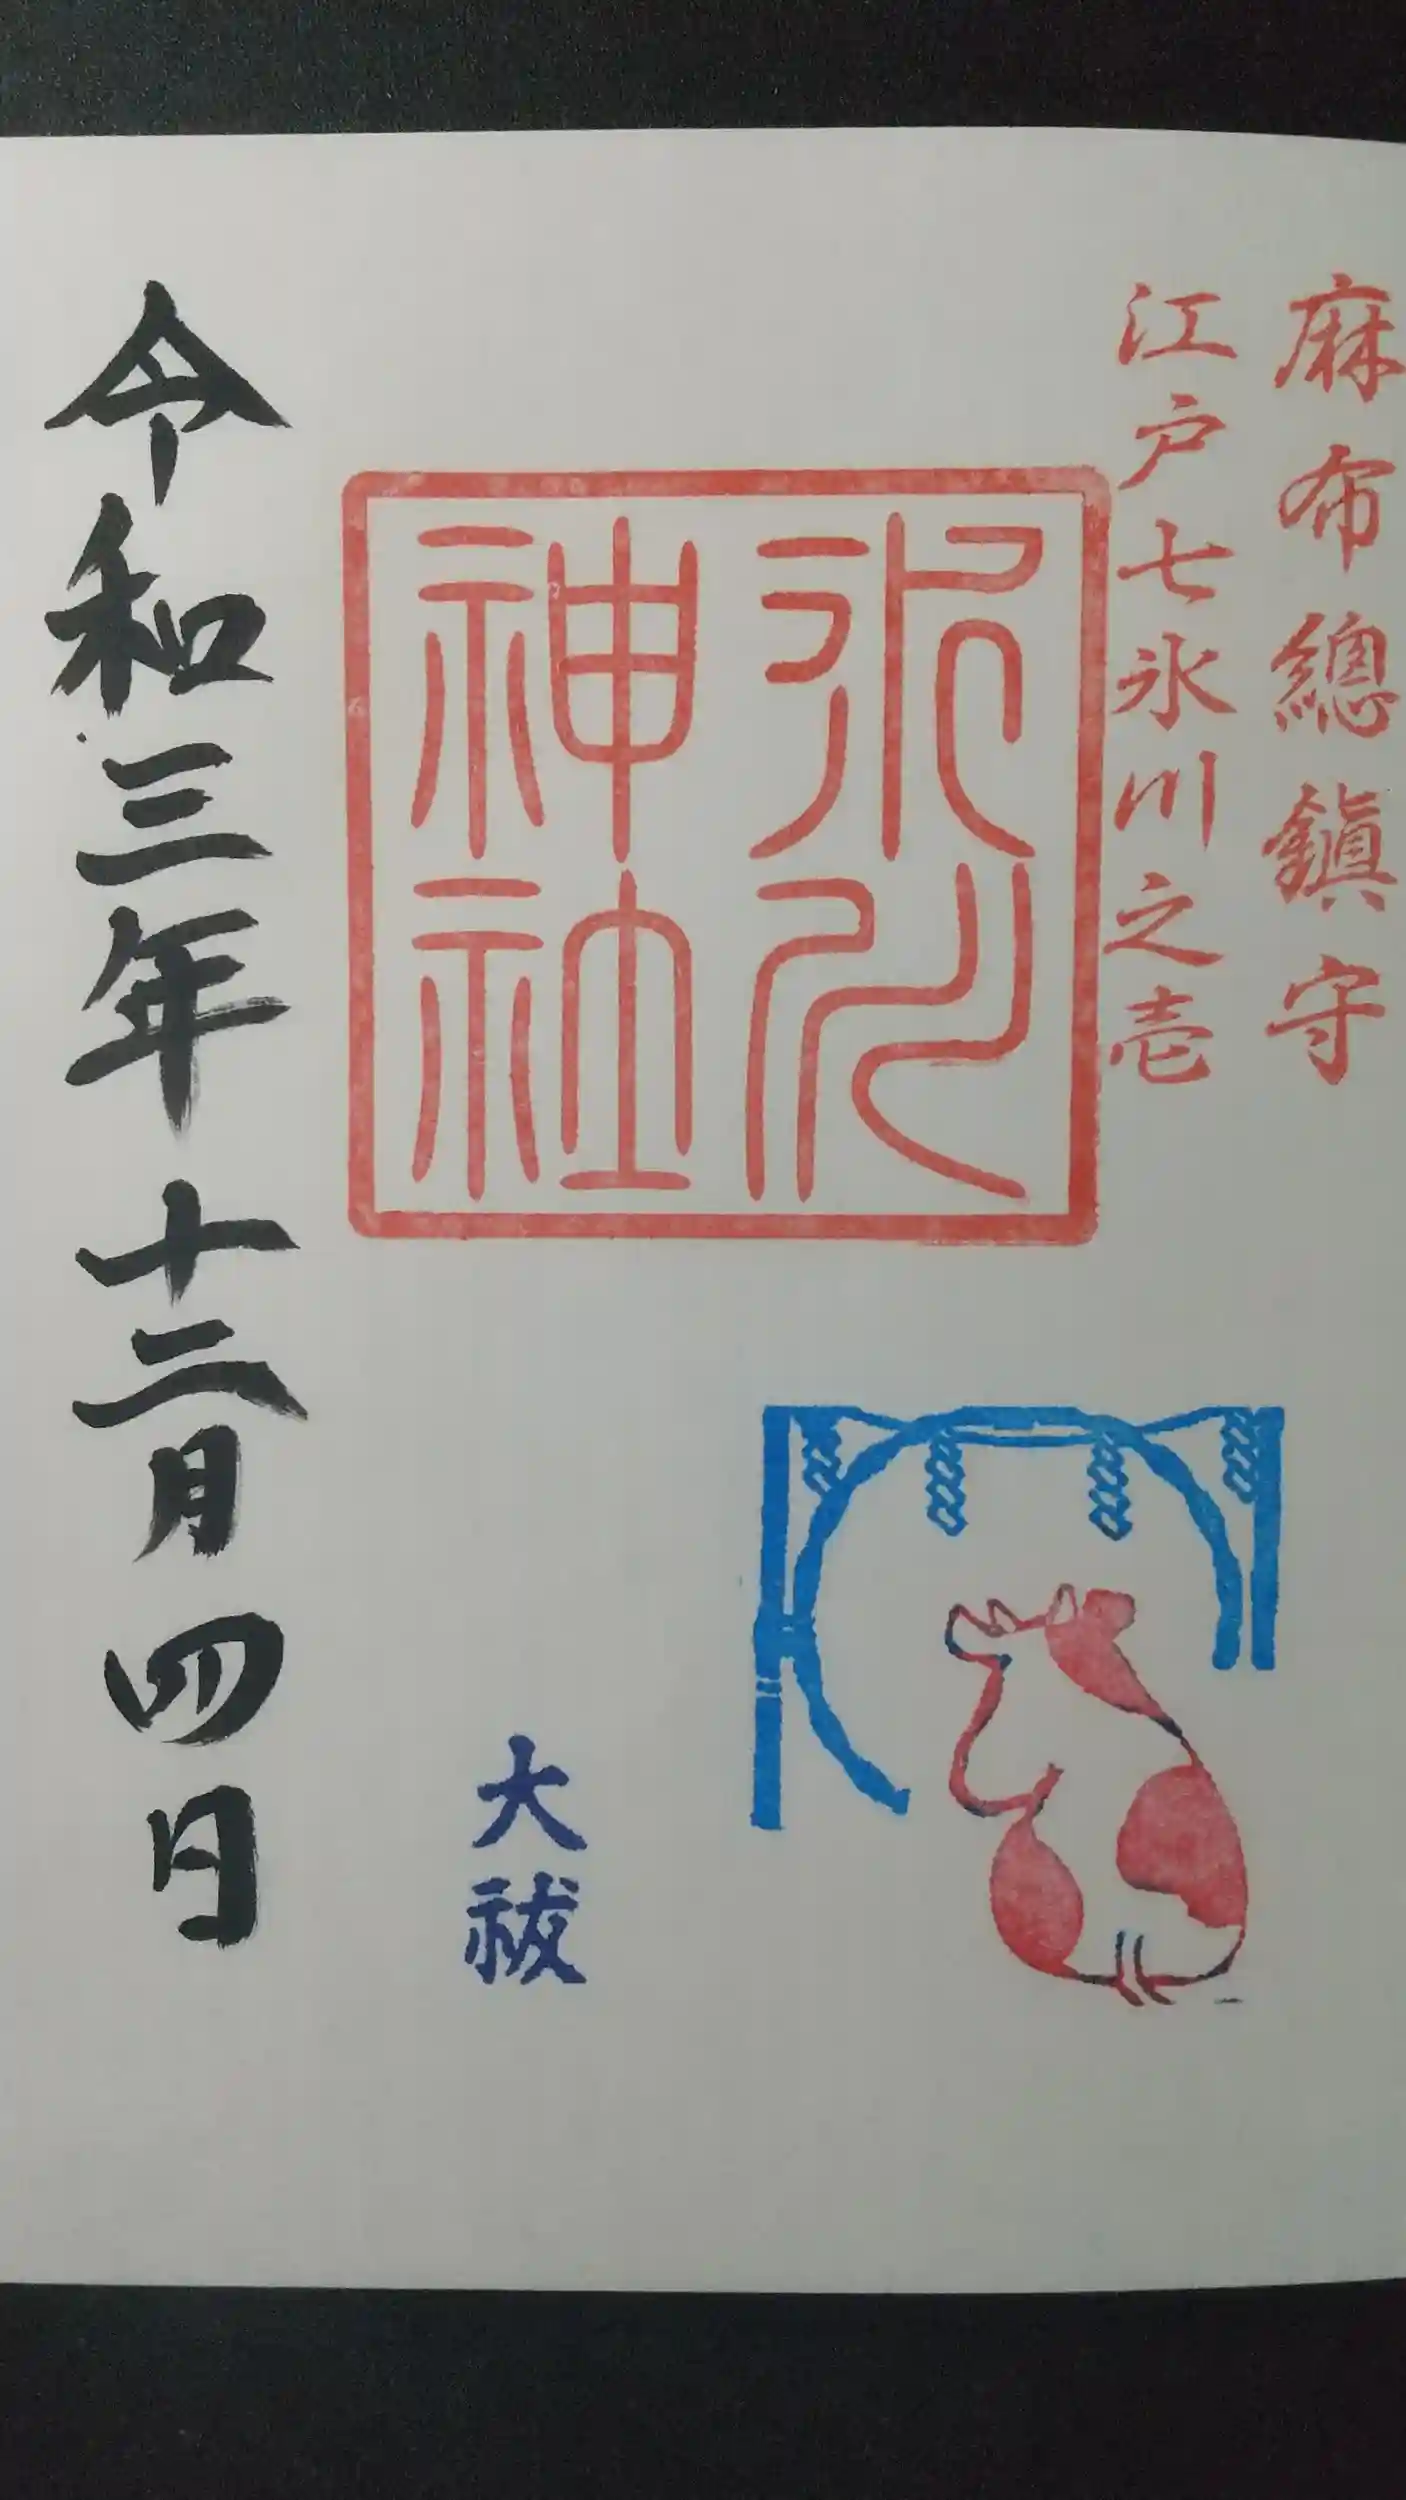 麻布總鎭守
江戸七氷川之壱
氷川
神社
大祓
令和三年十二月四日